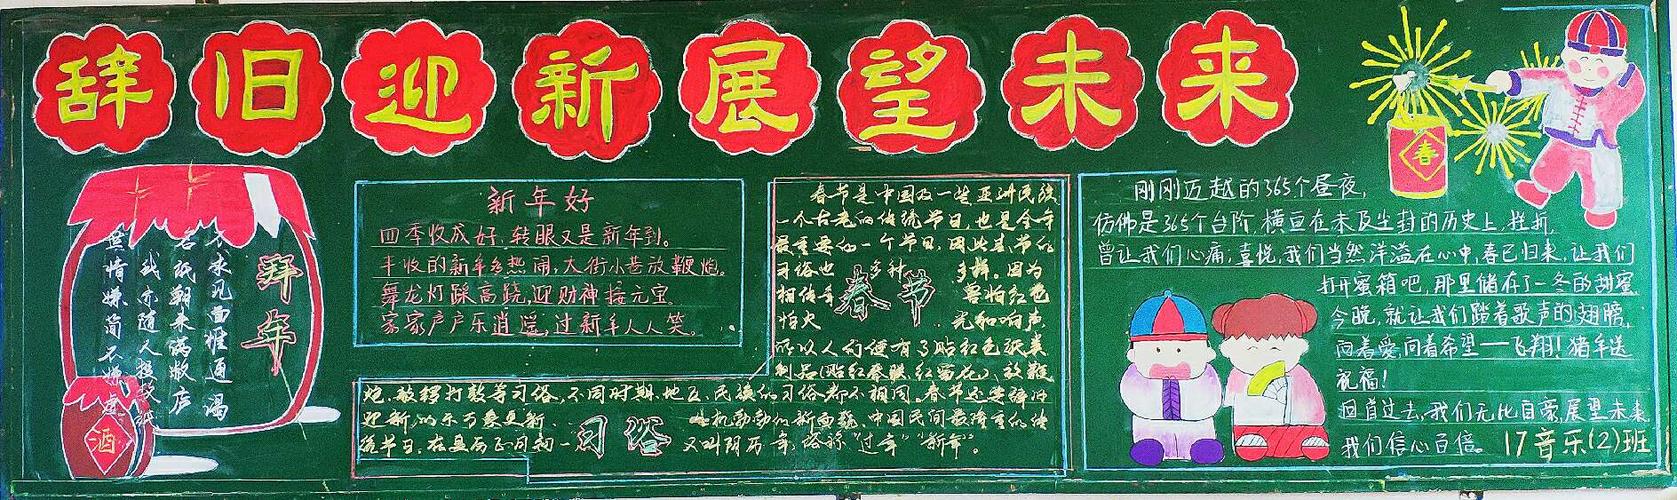 辞旧迎新展望未来
春
拜年
不求见面惟通谒
名纸朝来满敝庐
我亦随人投数纸
世情嫌简不嫌虚
酒
新年好
四季收成好,转眼又是新年到。
丰收的新年多热闹,大街小巷放鞭炮。
舞龙灯踩高跷,迎财神接元宝
家家户户乐逍遥,过新年人人笑。
春节是中国及一些亚洲民族
一个古老的传统节日,也是全年
最重要的一个节日,因此其节的
习俗也 多种 多样。因为
相传年 害怕红色
怕火 光和响声
所以人们便有了贴红色纸类
制品(贴红春联,红窗花)、放鞭
炮、敲锣打鼓等习俗,不同时期、地区、民族的习俗都不相同。春节还是辞旧
迎新的 万象更新 勃勃的新面貌、中国民间最隆重的传
统节日,在夏历正月初一 又叫阴历年,俗称"过年""新年"。
春节
习俗
刚刚迈越的365个昼夜,
仿佛是365个台阶,横亘在未及尘封的历史上,挫折,
曾让我们心痛;喜悦,我们当然洋溢在心中,春已归来,让我们
打开蜜箱吧,那里储存了一冬的甜蜜
今晚,就让我们踏着歌声的翅膀,
向着爱,向着希望——飞翔!猪年送
祝福!
回首过去,我们无比自豪,展望未来
我们信心百倍。 17音乐(2)班